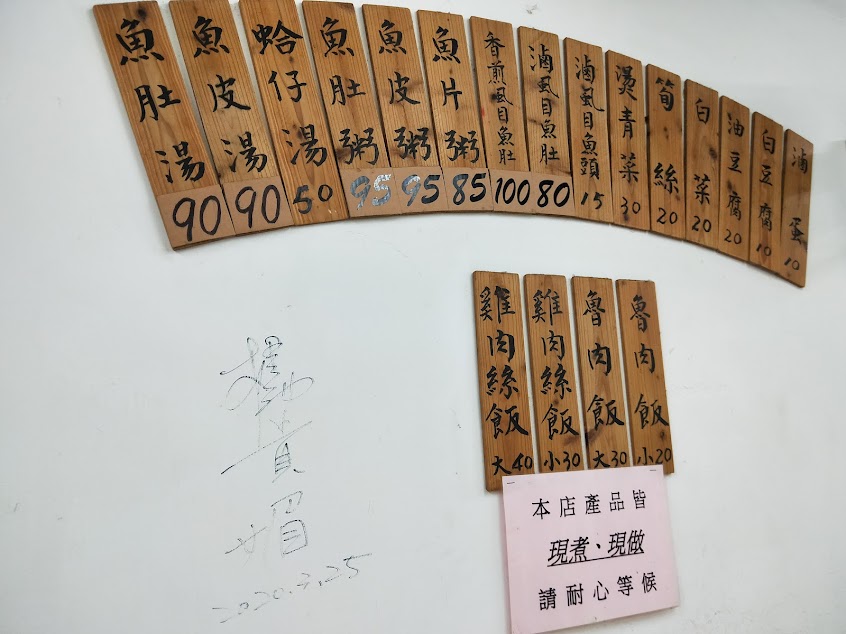 魚肚湯 90
魚皮湯 90
蛤仔湯 50
魚肚粥 95
魚皮粥 95
魚片粥 85
香煎虱目魚肚 100
滷虱目魚肚 80
滷虱目魚頭 15
燙青菜 30
筍絲 20
白菜 20
油豆腐 20
白豆腐 10
滷蛋 10
雞肉絲飯 大40
雞肉絲飯 小30
魯肉飯 大30
魯肉飯 小20
本店產品皆
現煮、現做
請耐心等候
貴媚
2020.3.25